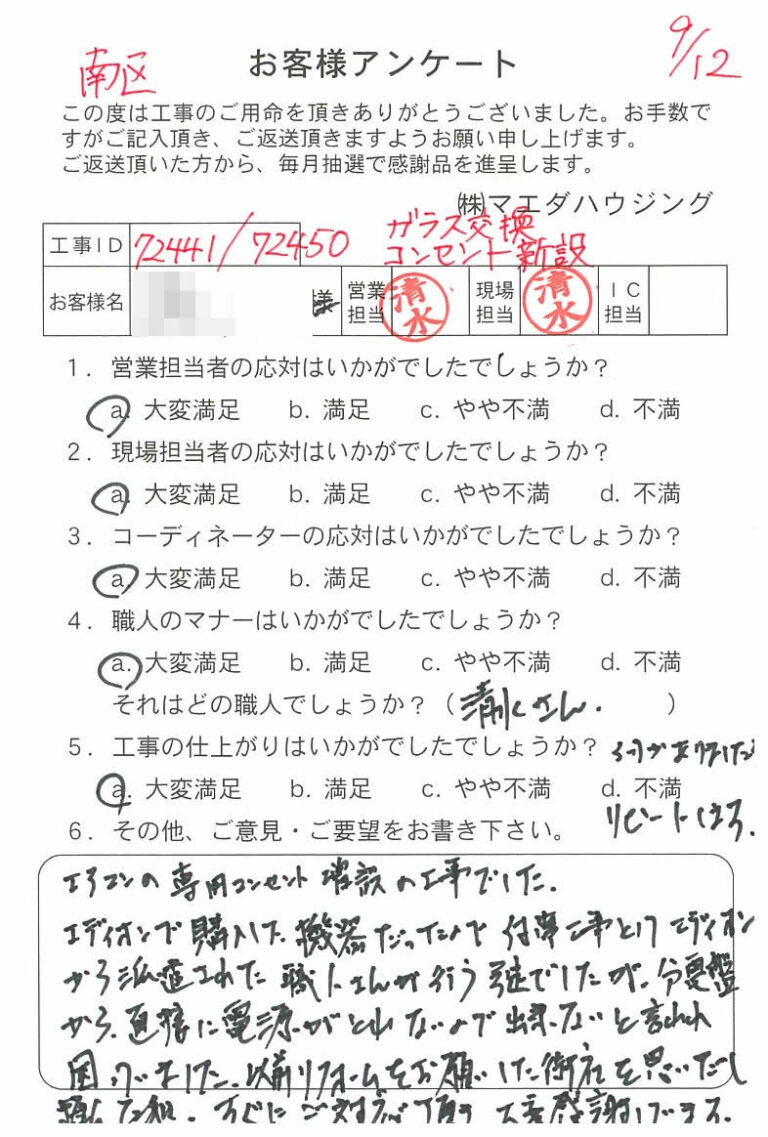 南区 お客様アンケート 9/12
この度は工事のご用命を頂きありがとうございました。お手数で
すがご記入頂き、ご返送頂きますようお願い申し上げます。
ご返送頂いた方から、毎月抽選で感謝品を進呈します。
㈱マエダハウジング
工事ID 72441/72450 ガラス交換
コンセント新設
お客様名 様 営業担当 清水 現場担当 清水 IC担当
1. 営業担当者の応対はいかがでしたでしょうか?
a. 大変満足 b. 満足 c. やや不満 d. 不満
2. 現場担当者の応対はいかがでしたでしょうか?
a. 大変満足 b. 満足 c. やや不満 d. 不満
3. コーディネーターの応対はいかがでしたでしょうか?
a. 大変満足 b. 満足 c. やや不満 d. 不満
4. 職人のマナーはいかがでしたでしょうか?
a. 大変満足 b. 満足 c. やや不満 d. 不満
それはどの職人でしょうか?(清水さん. )
5. 工事の仕上がりはいかがでしたでしょうか?
a. 大変満足 b. 満足 c. やや不満 d. 不満
リピートします.
6. その他、ご意見・ご要望をお書き下さい。
エアコンの専用コンセント増設の工事でした.
エディオンで購入した機器だったので付帯工事としてエディオン
から派遣された職人さんが行う予定でしたが、分電盤
から直接に電源がとれないので出来ないと言われ
困っていました. 以前リフォームをお願いした御社を思いだし
すぐにご対応頂き大変感謝しています.